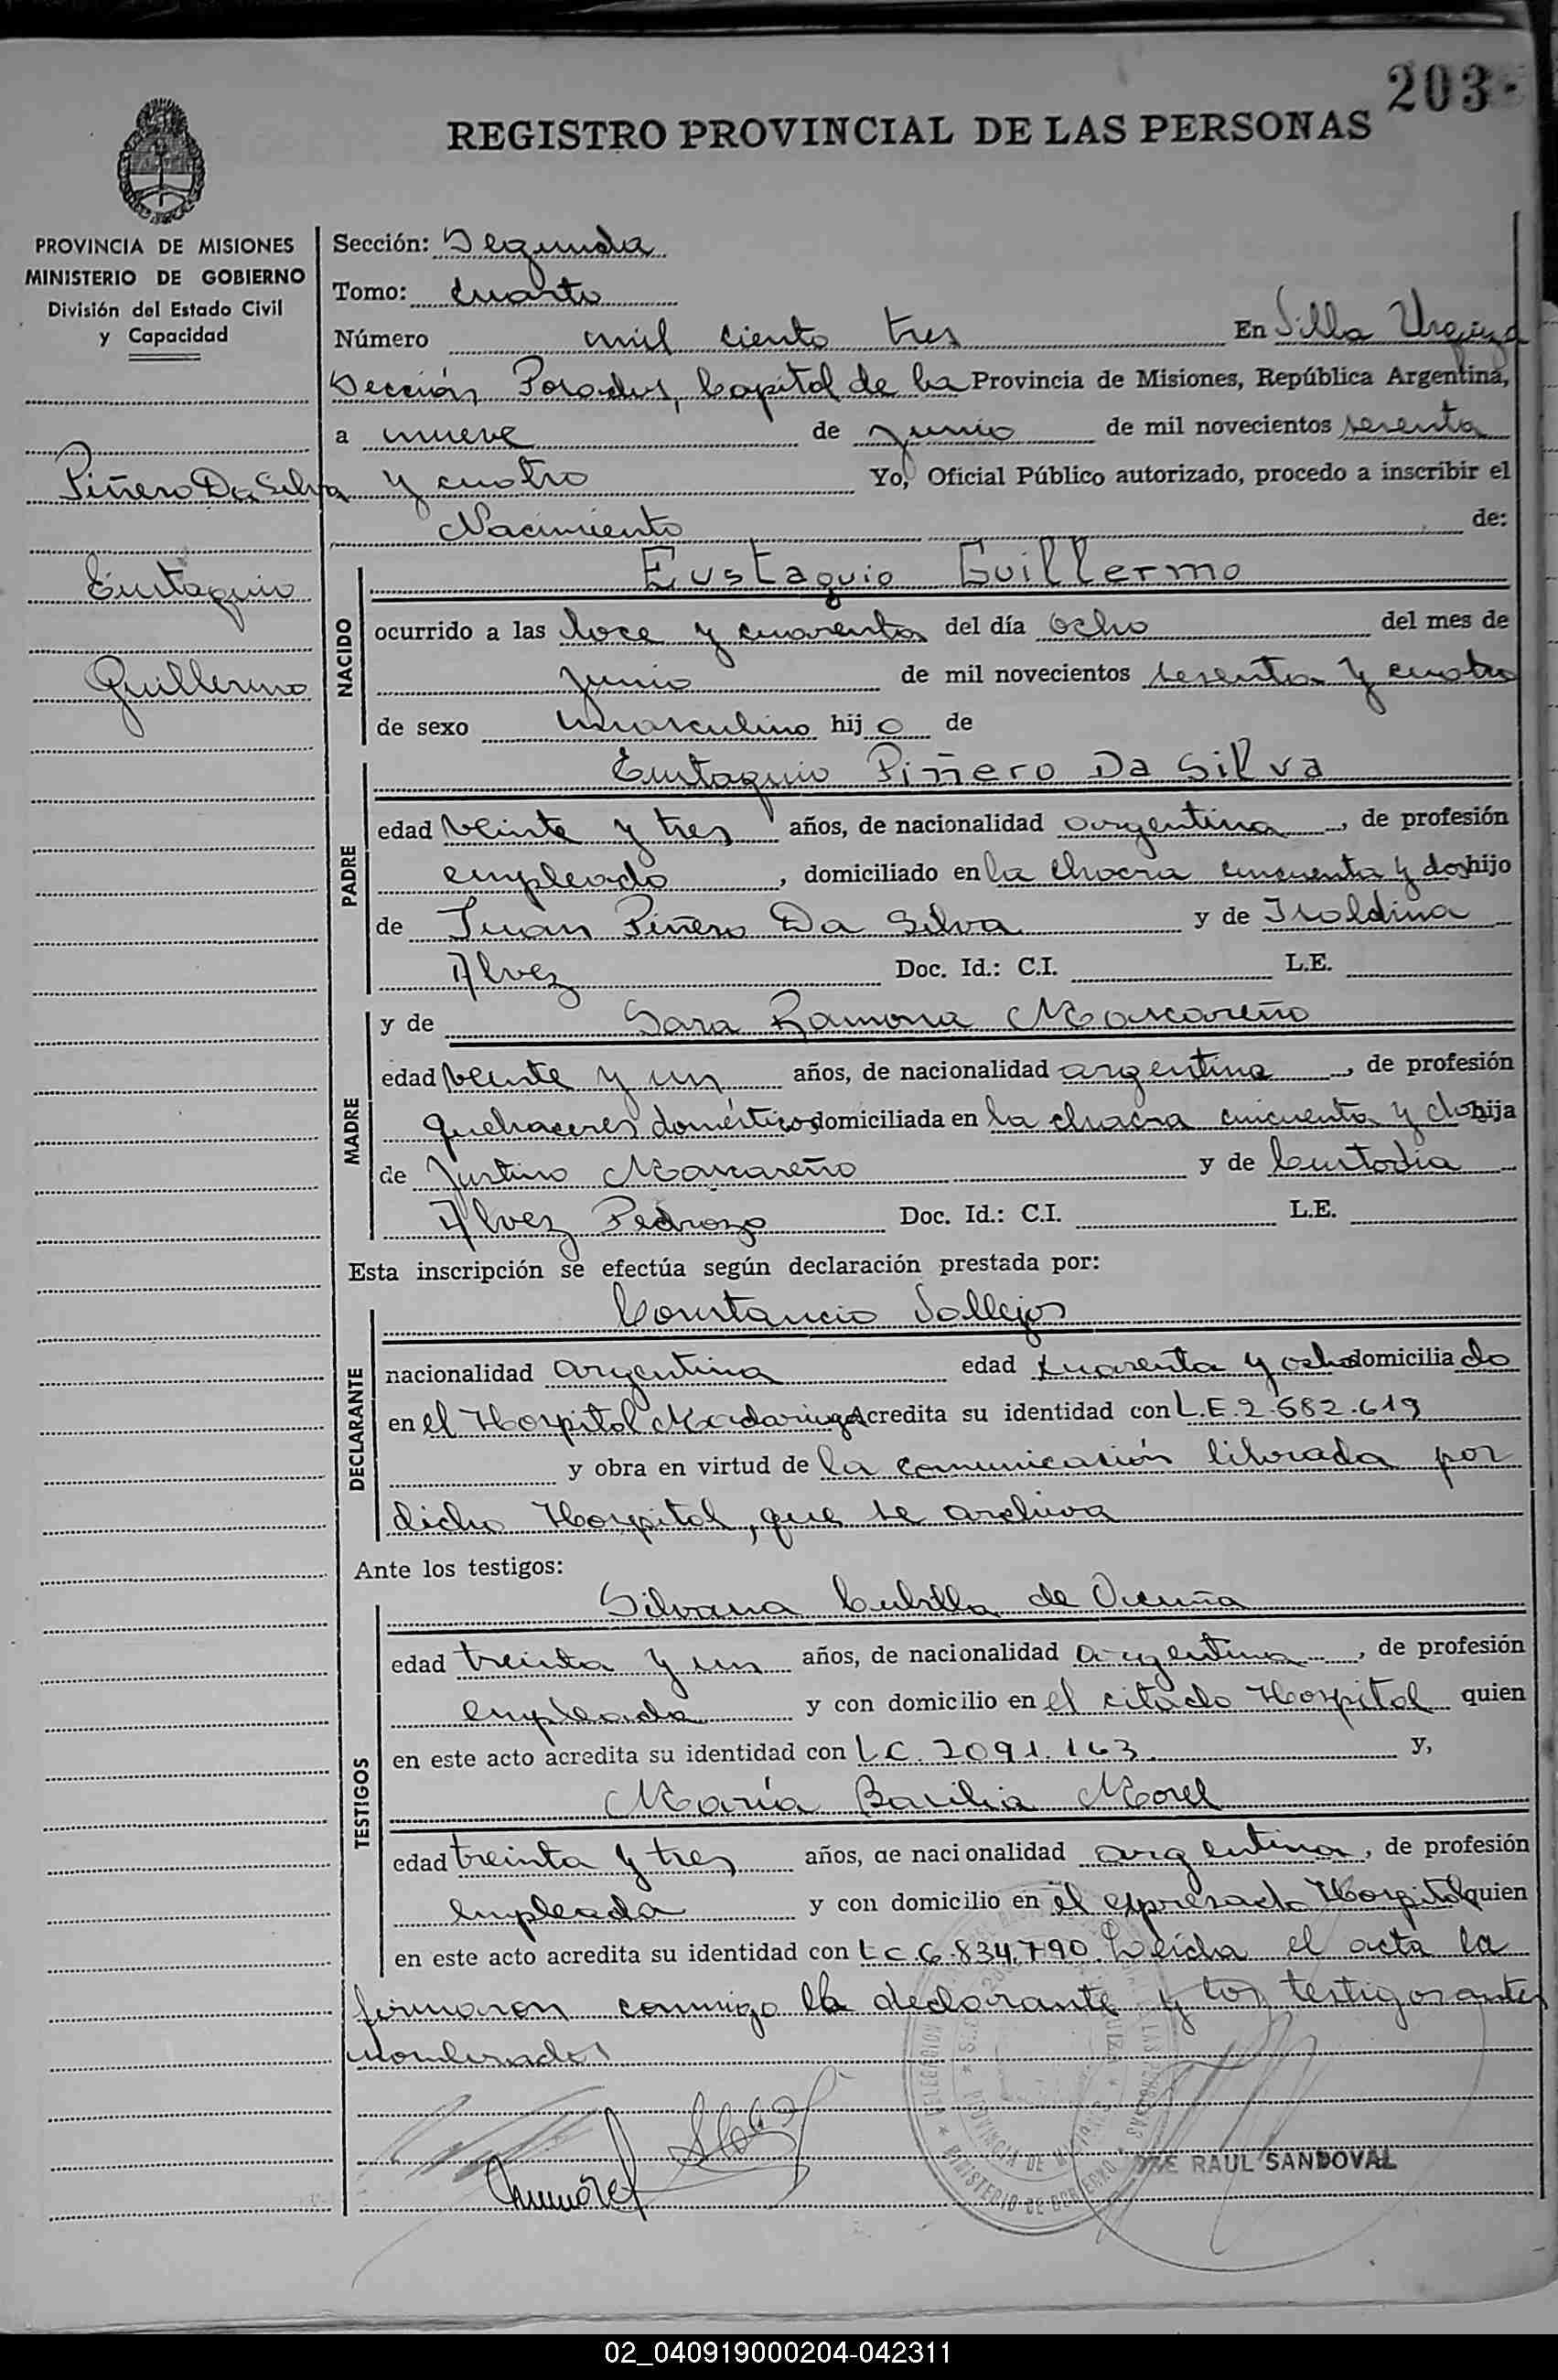 203.
REGISTRO PROVINCIAL DE LAS PERSONAS
PROVINCIA DE MISIONES
MINISTERIO DE GOBIERNO
División del Estado Civil
y Capacidad
Piñero Da Silva
Eustaquio
Guillermo
Sección: Segunda
Tomo: Cuarto
Número mil ciento tres En Villa Urquiza
Sección Posadas, Capital de la Provincia de Misiones, República Argentina,
a nueve de Junio de mil novecientos sesenta
y cuatro Yo, Oficial Público autorizado, procedo a inscribir el
Nacimiento de:
NACIDO
Eustaquio Guillermo
ocurrido a las doce y cuarenta del día ocho del mes de
Junio de mil novecientos sesenta y cuatro
de sexo masculino hijo de
PADRE
Eustaquio Piñero Da Silva
edad veinte y tres años, de nacionalidad argentina, de profesión
empleado, domiciliado en la chacra cincuenta y dos hijo
de Juan Piñero Da Silva y de Isoldina
Alvez Doc. Id.: C.I. L.E.
MADRE
y de Sara Ramona Mascareño
edad veinte y un años, de nacionalidad argentina, de profesión
quehaceres domésticos domiciliada en la chacra cincuenta y dos hija
de Justino Mascareño y de Custodia
Alvez Pedrozo Doc. Id.: C.I. L.E.
Esta inscripción se efectúa según declaración prestada por:
DECLARANTE
Constancio Vallejos
nacionalidad argentina edad cuarenta y ocho domiciliado
en el Hospital Madariaga Acredita su identidad con L.E. 2.582.619
y obra en virtud de la comunicación librada por
dicho Hospital, que se archiva
Ante los testigos:
TESTIGOS
Silvana Cubilla de Vicuña
edad treinta y un años, de nacionalidad argentina, de profesión
empleada y con domicilio en el citado Hospital quien
en este acto acredita su identidad con L.C. 2091.163 y,
María Basilia Morel
edad treinta y tres años, de nacionalidad argentina, de profesión
empleada y con domicilio en el expresado Hospital quien
en este acto acredita su identidad con L.C. 6.834.790. Leída el acta la
firmaron conmigo el declarante y los testigos antes
nombrados
RAUL SANDOVAL
02_040919000204-042311